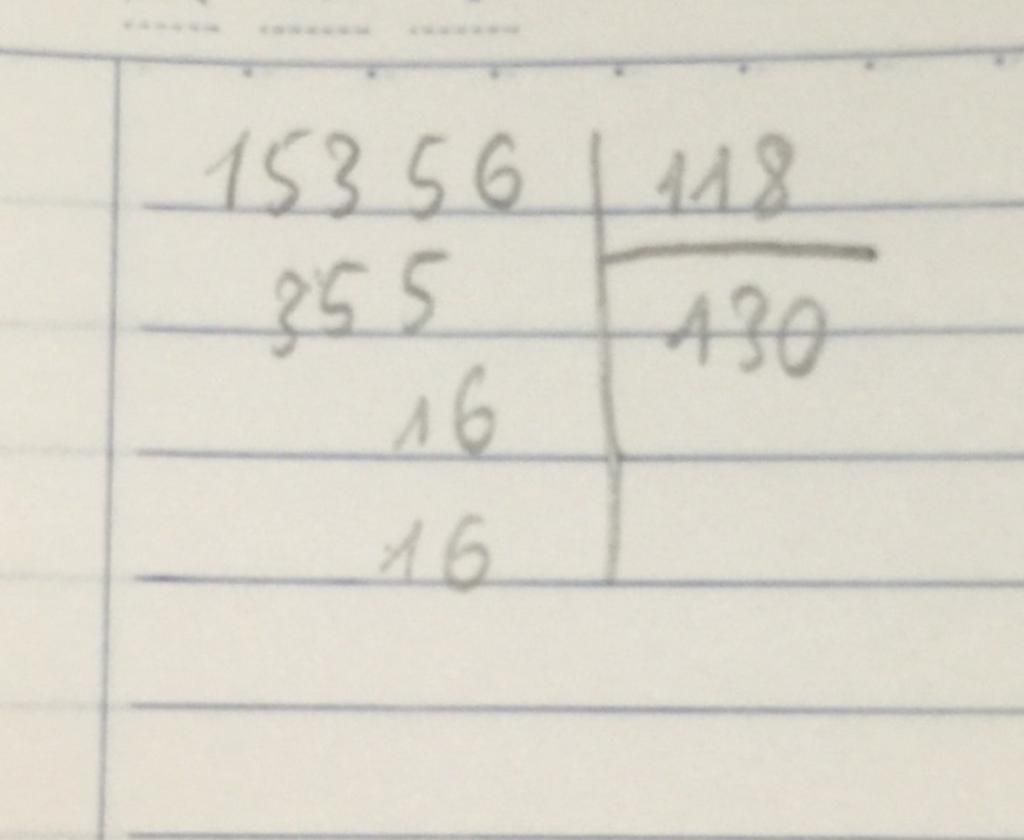 15356 118
355 130
16
16